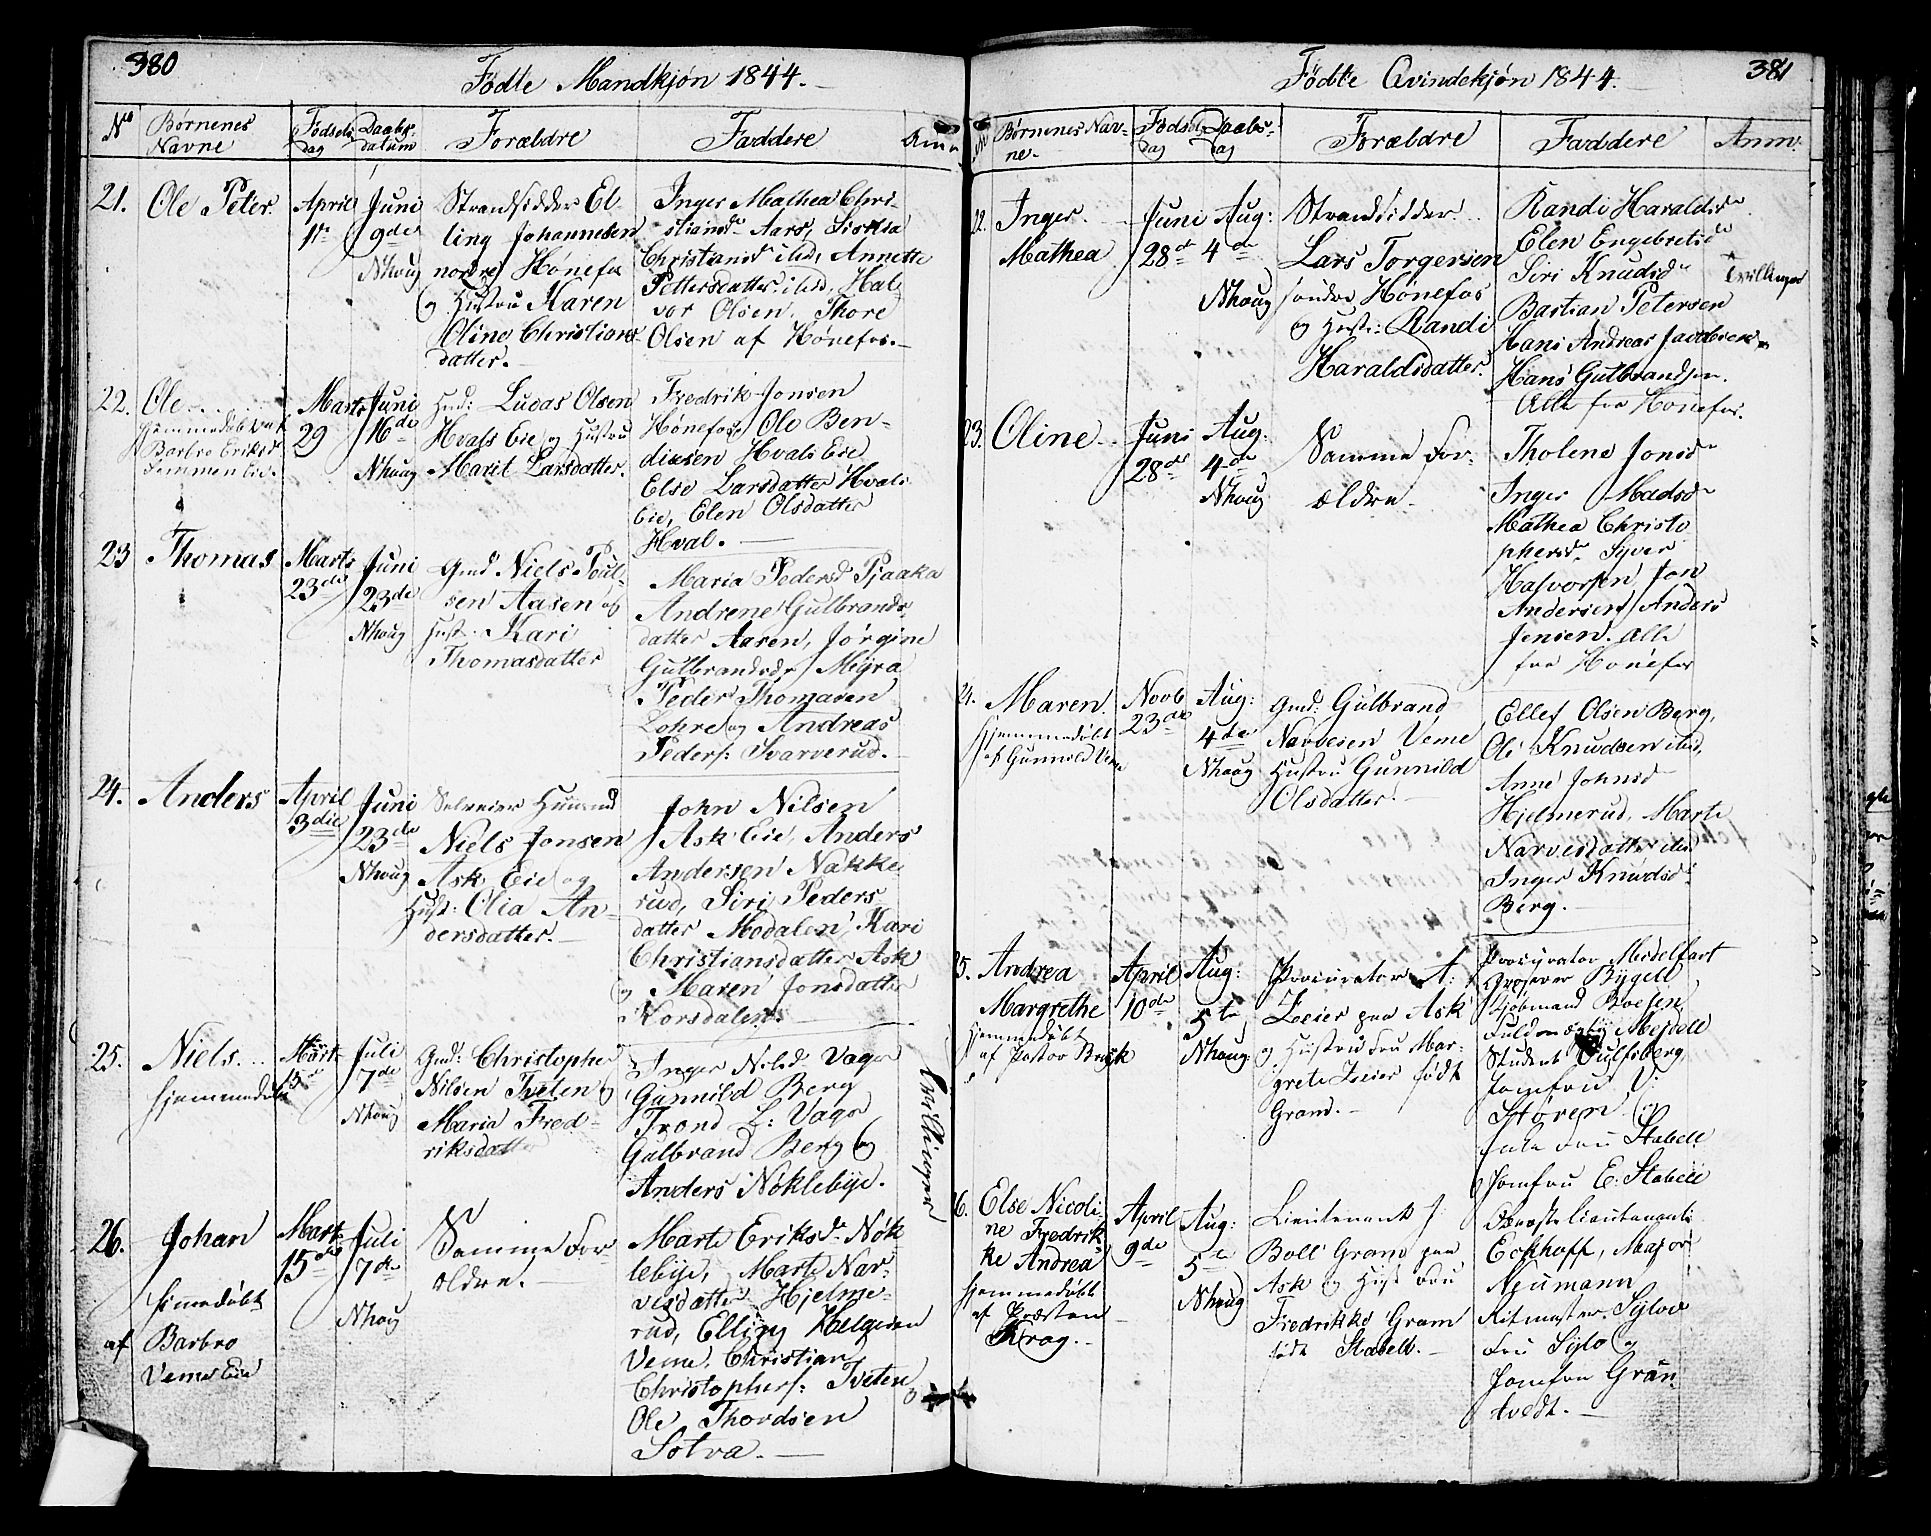 380
Fødte Mandkjøn 1844.
No Børnenes Navne
Fødsels dag
Daabs-datum
Forældre
Faddere
Anm
21. Ole Peter.
April 1te
Juni 9de
Nhoug
Strandsidder El-
ling Johannesen
nordre Hønefos
og Hustru Karen
Oline Christians-
datter.
Inger Mathea Chri-
stiansdr Aars,
Christiansd ibd, Annette
Pettersdatter ibid, Hal-
vor Olsen, Thore
Olsen af Hønefos.
22. Ole
hjemmedøbt af
Barbro Eriksd
Marts 29
Juni 16de
Nhoug
Lucas Olsen
Hvals Eie og Hustru
Marit Larsdatter.
Fredrik Jonsen
Hønefos, Ole Ben-
dixsen Hvals Eie
Else Larsdatter Hvals
Eie, Elen Olsdatter
Hval.
23 Thomas
Marts 23de
Juni 23de
Nhoug
Gmd Niels Poul-
sen Aasen og
Hust: Kari
Thomasdatter
Maria Pedersd Pjaaka
Andrene Gulbrands-
datter Aaren, Jörgine
Gulbrandsdr Myra
Peder Thomasen
Lohre og Andreas
Peders: Svarverud.
24. Anders
April 3die
Juni 23de
Nhoug
Selveier Huusmd
Niels Jonsen
Ask Eie og
Hust: Olia An-
dersdatter.
John Nilsen
Ask Eie, Anders
Andersen Nakke-
rud, Siri Peders-
datter Modalen, Kari
Christiansdatter Ask
og Maren Jonsdatter
Korsdalen.
25. Niels
hjemmedøbt
Mart. 15de
Juli 7de
Nhoug
Gmd: Christopher
Nilsen Tveten og
Maria Fred-
riksdatter
Inger Nilsd Vager
Gunnild Berg
Trond L: Vager
Gulbrand Berg og
Anders Nøklebye.
Tvillinger
26. Johan
hjemmedøbt
af Barbro
Vemes Eie
Mart. 15de
Juli 7de
Nhoug
Samme For-
ældre.
Marte Eriksdr Nøk-
lebye, Marte Nar-
vesdatter Hjelme-
rud, Elling Helgesen
Veme, Christian
Christophers: Tveten
Ole Thordsen
Sotva.
381
Fødte Qvindekjøn 1844.
No Børnenes Nav-
ne.
Fødsels dag
Daabs-dag
Forældre
Faddere
Anm.
22. Inger
Mathea
Juni 28de
Aug: 4de
Nhoug
Strandsidder
Lars Torgersen
søndre Hønefos
og Hustr: Randi
Haraldsdatter.
Randi Haraldsdr
Elen Engebretsdr
Siri Knudsdr
Bastian Petersen
Hans Andreas Jacobsen
Hans Gulbrandsen.
Alle fra Hønefos.
Tvillinger
23. Oline
Juni 28de
Aug. 4de
Nhoug
Samme For-
ældre.
Tholene Jonsdr
Inger Madsdr
Mathea Christo-
phersdr Syver
Halvorsen Jon
Andersen, Anders
Jensen. Alle
fra Hønefos
24. Maren.
hjemmedøbt
af Gunnild Veme
Novb 23de
Aug: 4de
Nhoug
Gmd: Gulbrand
Narvesen Veme
Hustru Gunnild
Olsdatter.
Ellef Olsen Berg,
Ole Knudsen ibd,
Anne Johnsd
Hjelmerud, Marte
Narvesdatter ibd
Inger Knudsd
Berg.
25. Andrea
Margrethe
hjemmedøbt
af Pastor
April 10de
Aug: 5te
Nhoug
Procurator A:
Leier paa Ask
og Hustru Fru Mar-
grete Leier født
Gram.
Procurator Meidelfart
Bygell
Kjøbmand Boesen,
Student Gulfsberg,
Jomfru V:
Støren, og
Fru Stabell
Jomfru E: Stabell
26. Else Nicoli-
ne Fredrik-
ke Andrea
hjemmedøbt
af Præsten
Krag.
April 9de
Aug: 5te
Nhoug
Lieutenant J:
Boll Gram paa
Ask og Hust Fru
Fredrikke Gram
født Stabell.
Oberstelieutenant
Eckhoff, Major
Neumann
Ritmester Sylow
Fru Sylow og
Jomfru Grøn-
tvedt.